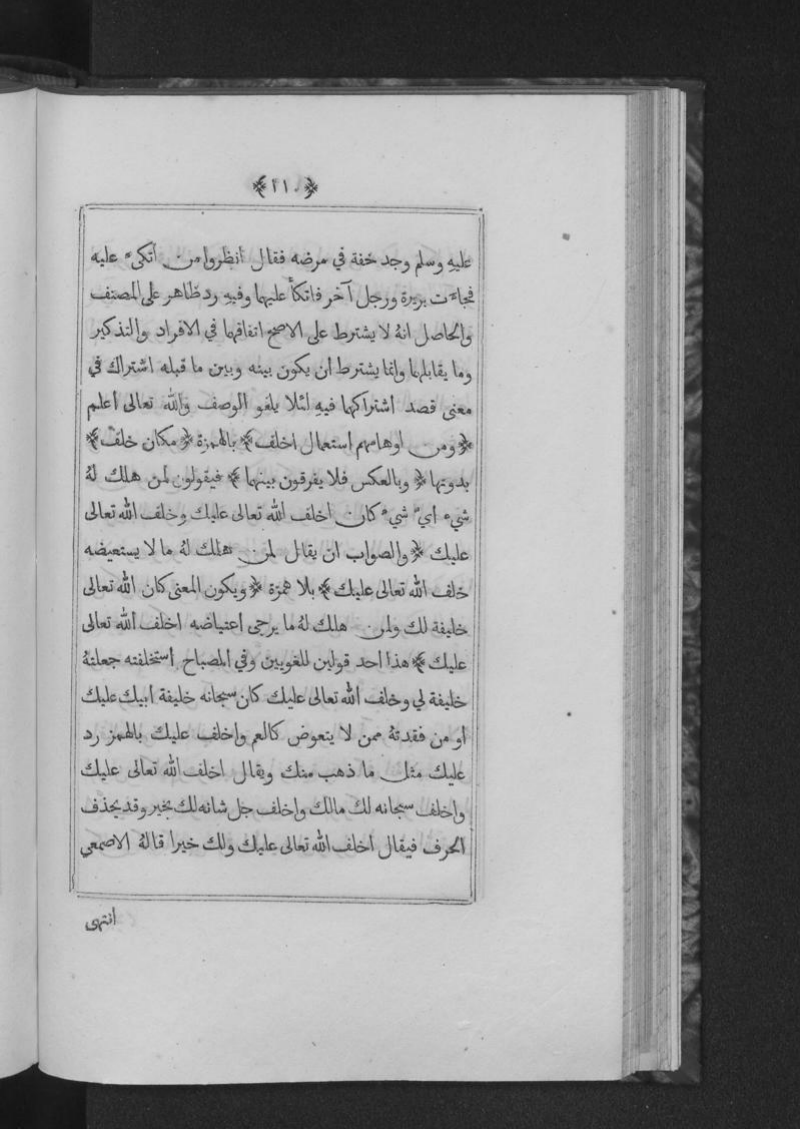 ﴿٢١٠﴾
عليهِ وسلم وجد خفة في مرضه فقال انظروا من أتكىء عليه
فجاءت بريرة ورجل آخر فاتكأ عليهما وفيهِ رد ظاهر على المصنف
والحاصل انهُ لا يشترط على الاصح اتفاقهما في الافراد والتذكير
وما يقابلهما وانما يشترط ان يكون بينه وبين ما قبله اشتراك في
معنى قصد اشتراكهما فيهِ لئلا يلغو الوصف والله تعالى أعلم
﴿ ومن اوهامهم استعمال اخلف ﴾ بالهمزة ﴿ مكان خلف ﴾
بدونها ﴿ وبالعكس فلا يفرقون بينهما ﴾ فيقولون لمن هلك لهُ
شيء أي شيء كان اخلف الله تعالى عليك وخلف الله تعالى
عليك ﴿ والصواب ان يقال لمن هلك لهُ ما لا يستعيضه
خلف الله تعالى عليك ﴾ بلا همزة ﴿ ويكون المعنى كان الله تعالى
خليفة لك ولمن هلك لهُ ما يرجى اعتياضه اخلف الله تعالى
عليك ﴾ هذا احد قولين للغويين وفي المصباح استخلفته جعلتهُ
خليفة لي وخلف الله تعالى عليك كان سبحانه خليفة ابيك عليك
او من فقدتهُ ممن لا يتعوض كالعم واخلف عليك بالهمز رد
عليك مثل ما ذهب منك ويقال اخلف الله تعالى عليك
واخلف سبحانه لك مالك واخلف جل شانه لك بخير وقد يحذف
الحرف فيقال اخلف الله تعالى عليك ولك خيرا قالهُ الاصمعي
انتهى